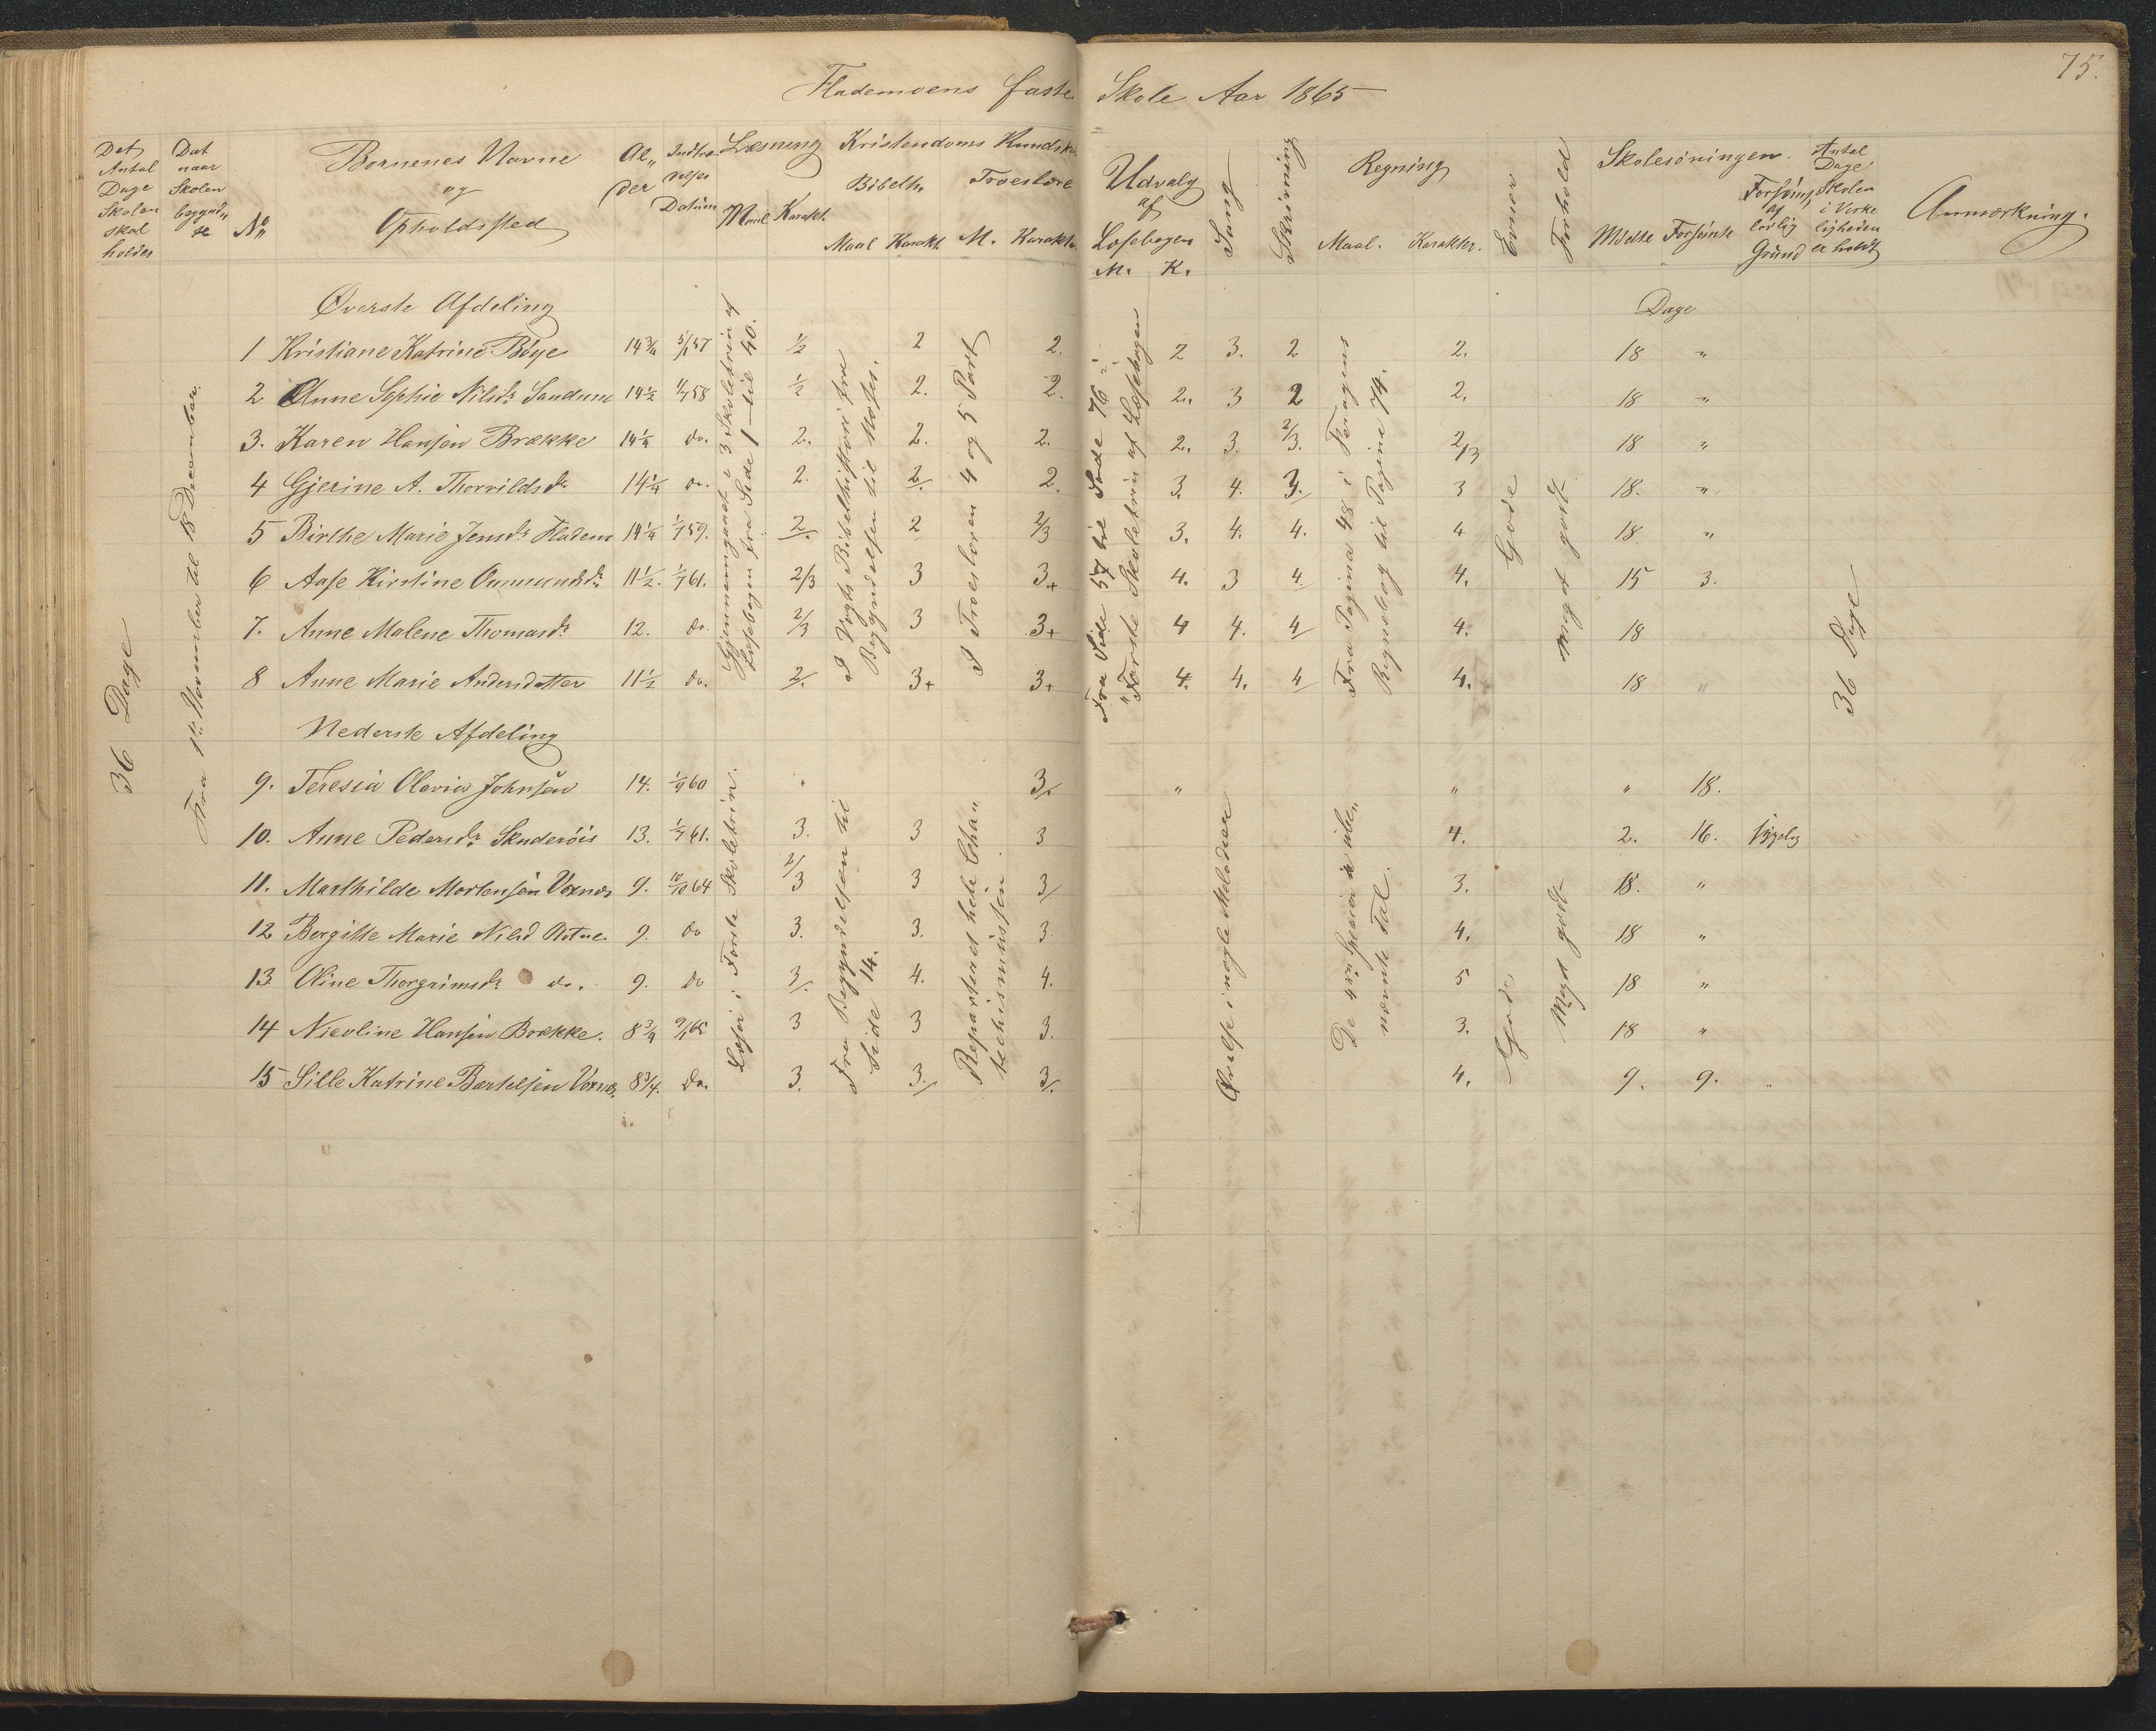 75.
Flademoens faste Skole Aar 1865
Det Antal Dage Skolen skal holdes
Dat naar Skolen begynd„ te
No
Børnenes Navne og Opholdssted
Al„ der
Indtræ„ delses Datum
Læsning
Maal Karakt.
Kristendoms Kundsk
Bibelh. Troeslære
Maal Karakt. M. Karakt.
Udvalg af Læsebogen
M. K.
Sang
Skrivning
Regning
Maal. Karakter.
Evner
Forhold
Skolesøningen.
Mødte Forsømte Forsøm af lovlig Grund
Antal Dage Skolen i Virke ligheden er holdt
Anmærkning.
36 Dage
Fra 1te November til 18 December.
Øverste Afdeling
Dage
1 Kristiane Katrine Bøye 14 3/4 5/1 57 1/2 2 2. 2 3. 2 2. 18 "
2 Anne Sophie Nilsdr Sandum 14 1/2 1/7 58 1/2 2. 2. 2. 3 2 2. 18 "
3. Karen Hansen Brække 14 1/4 do. 2. 2. 2. 2. 3. 2/3. 2/3 18 "
4 Gjerine A. Thorvildsdr 14 1/4 do. 2. 2/. 2. 3. 4. 3/. 3 18. "
5 Birthe Marie Jensdr Fladem 14 1/4 1/7 59. 2/. 2 2/3 3. 4. 4. 4 18 "
6 Aase Kirstine Ommundsdr 11 1/2. 1/7 61. 2/3 3 3+ 4. 3 4/ 4. 15 3.
7. Anne Malene Thomasdr 12. do. 2/3 3 3+ 4 4. 4/ 4. 18
8 Anne Marie Andersdatter 11 1/2 do. 2/. 3+ 3+ 4. 4. 4/ 4. 18 "
Gjennemgaaet i 3 Skoletrin af Læsebogen fra Side 1 – til 40.
I Vogts Bibelhistori fra Begyndelsen til Moses.
I Troeslæren 4 og 5 Part
Fra Side 57 til Side 76 i Første Skoletrin af Læsebogen
Fra Pagina 48 i Regnebog til Pagina 74.
Gode
Meget godt
36 Dage
Nederste Afdeling
9. Teresia Olavia Johnsen 14. 1/9 60 3/. " " " 18.
10. Anne Pedersdr Skuderöis 13. 1/7 61. 3. 3 3 4. 2. 16. sygelig
11. Marthilde Mortensen Voxnæs 9. 10/10 64 2/3 3 3/ 3. 18. "
12 Bergitte Marie Nilsd 9. do 3. 3. 3. 4. 18 "
13 Oline Thorgrimsdr do. 9. do 3/. 4. 4. 5 18 "
14 Nicoline Hansen Brække. 8 3/4 9/1 65 3 3 3. 3. 18 "
15 Sille Katrine Bertelsen Voxnæs. 8 3/4. do. 3. 3./ 3/. 4. 9. 9. "
Læser i Første Skoletrin.
Fra Begyndelsen til Side 14.
Repeteret hele Cha„ techismussen.
Øvelse i nogle Melodier
De 4re Specier i ube„ nævnte Tal.
Gode
Meget godt